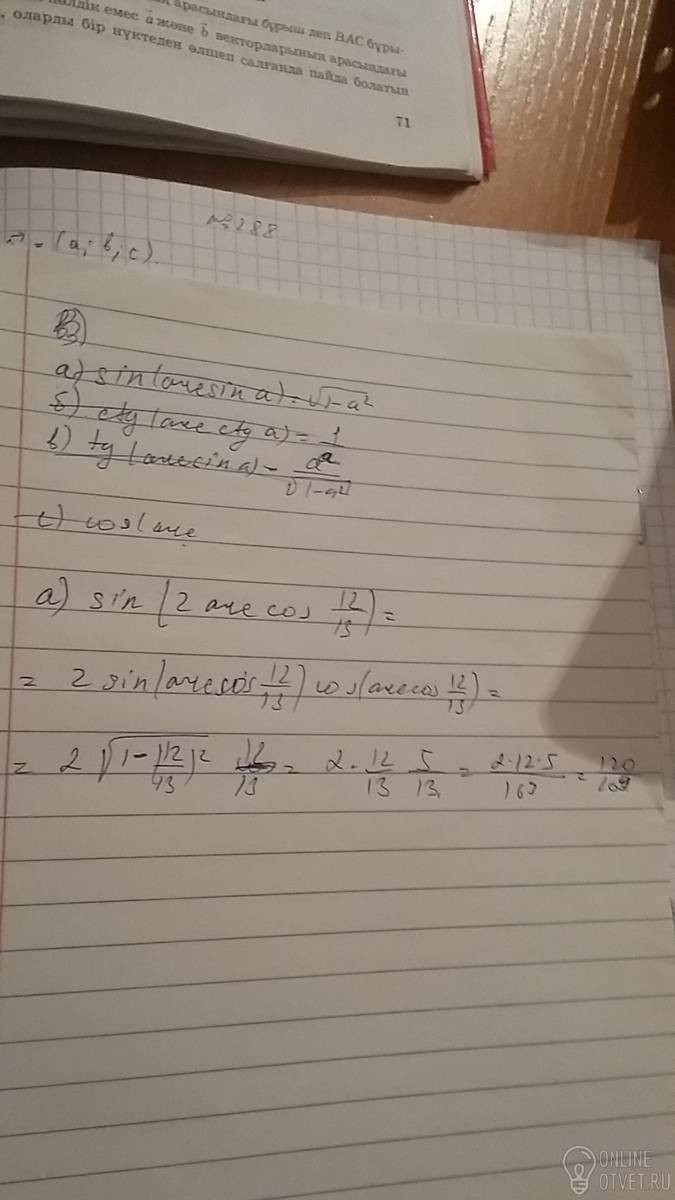 арасындағы бұрыш деп BAC бұры-
емес a⃗ және b⃗ векторларының арасындағы
, оларды бір нүктеден өлшеп салғанда пайда болатын
71
№288
= (a; b; c).
а) sin(arcsin a) = √1-a²
б) ctg(arcctg a) = 1
в) tg(arcsin a) = a/√1-a²
г) cos(arc
а) sin(2 arccos 12/13) =
= 2 sin(arccos 12/13) cos(arccos 12/13) =
= 2 √1-(12/13)² 12/13 = 2 · 12/13 5/13 = 2·12·5/169 = 120/169
ONLINE
OTVET.RU